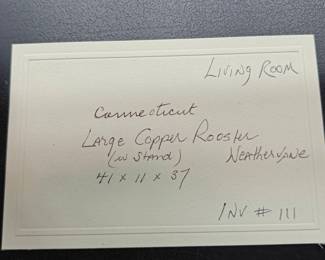 Living Room
Connecticut
Large Copper Rooster
(w Stand) Weathervane
41 x 11 x 37
Inv # 111